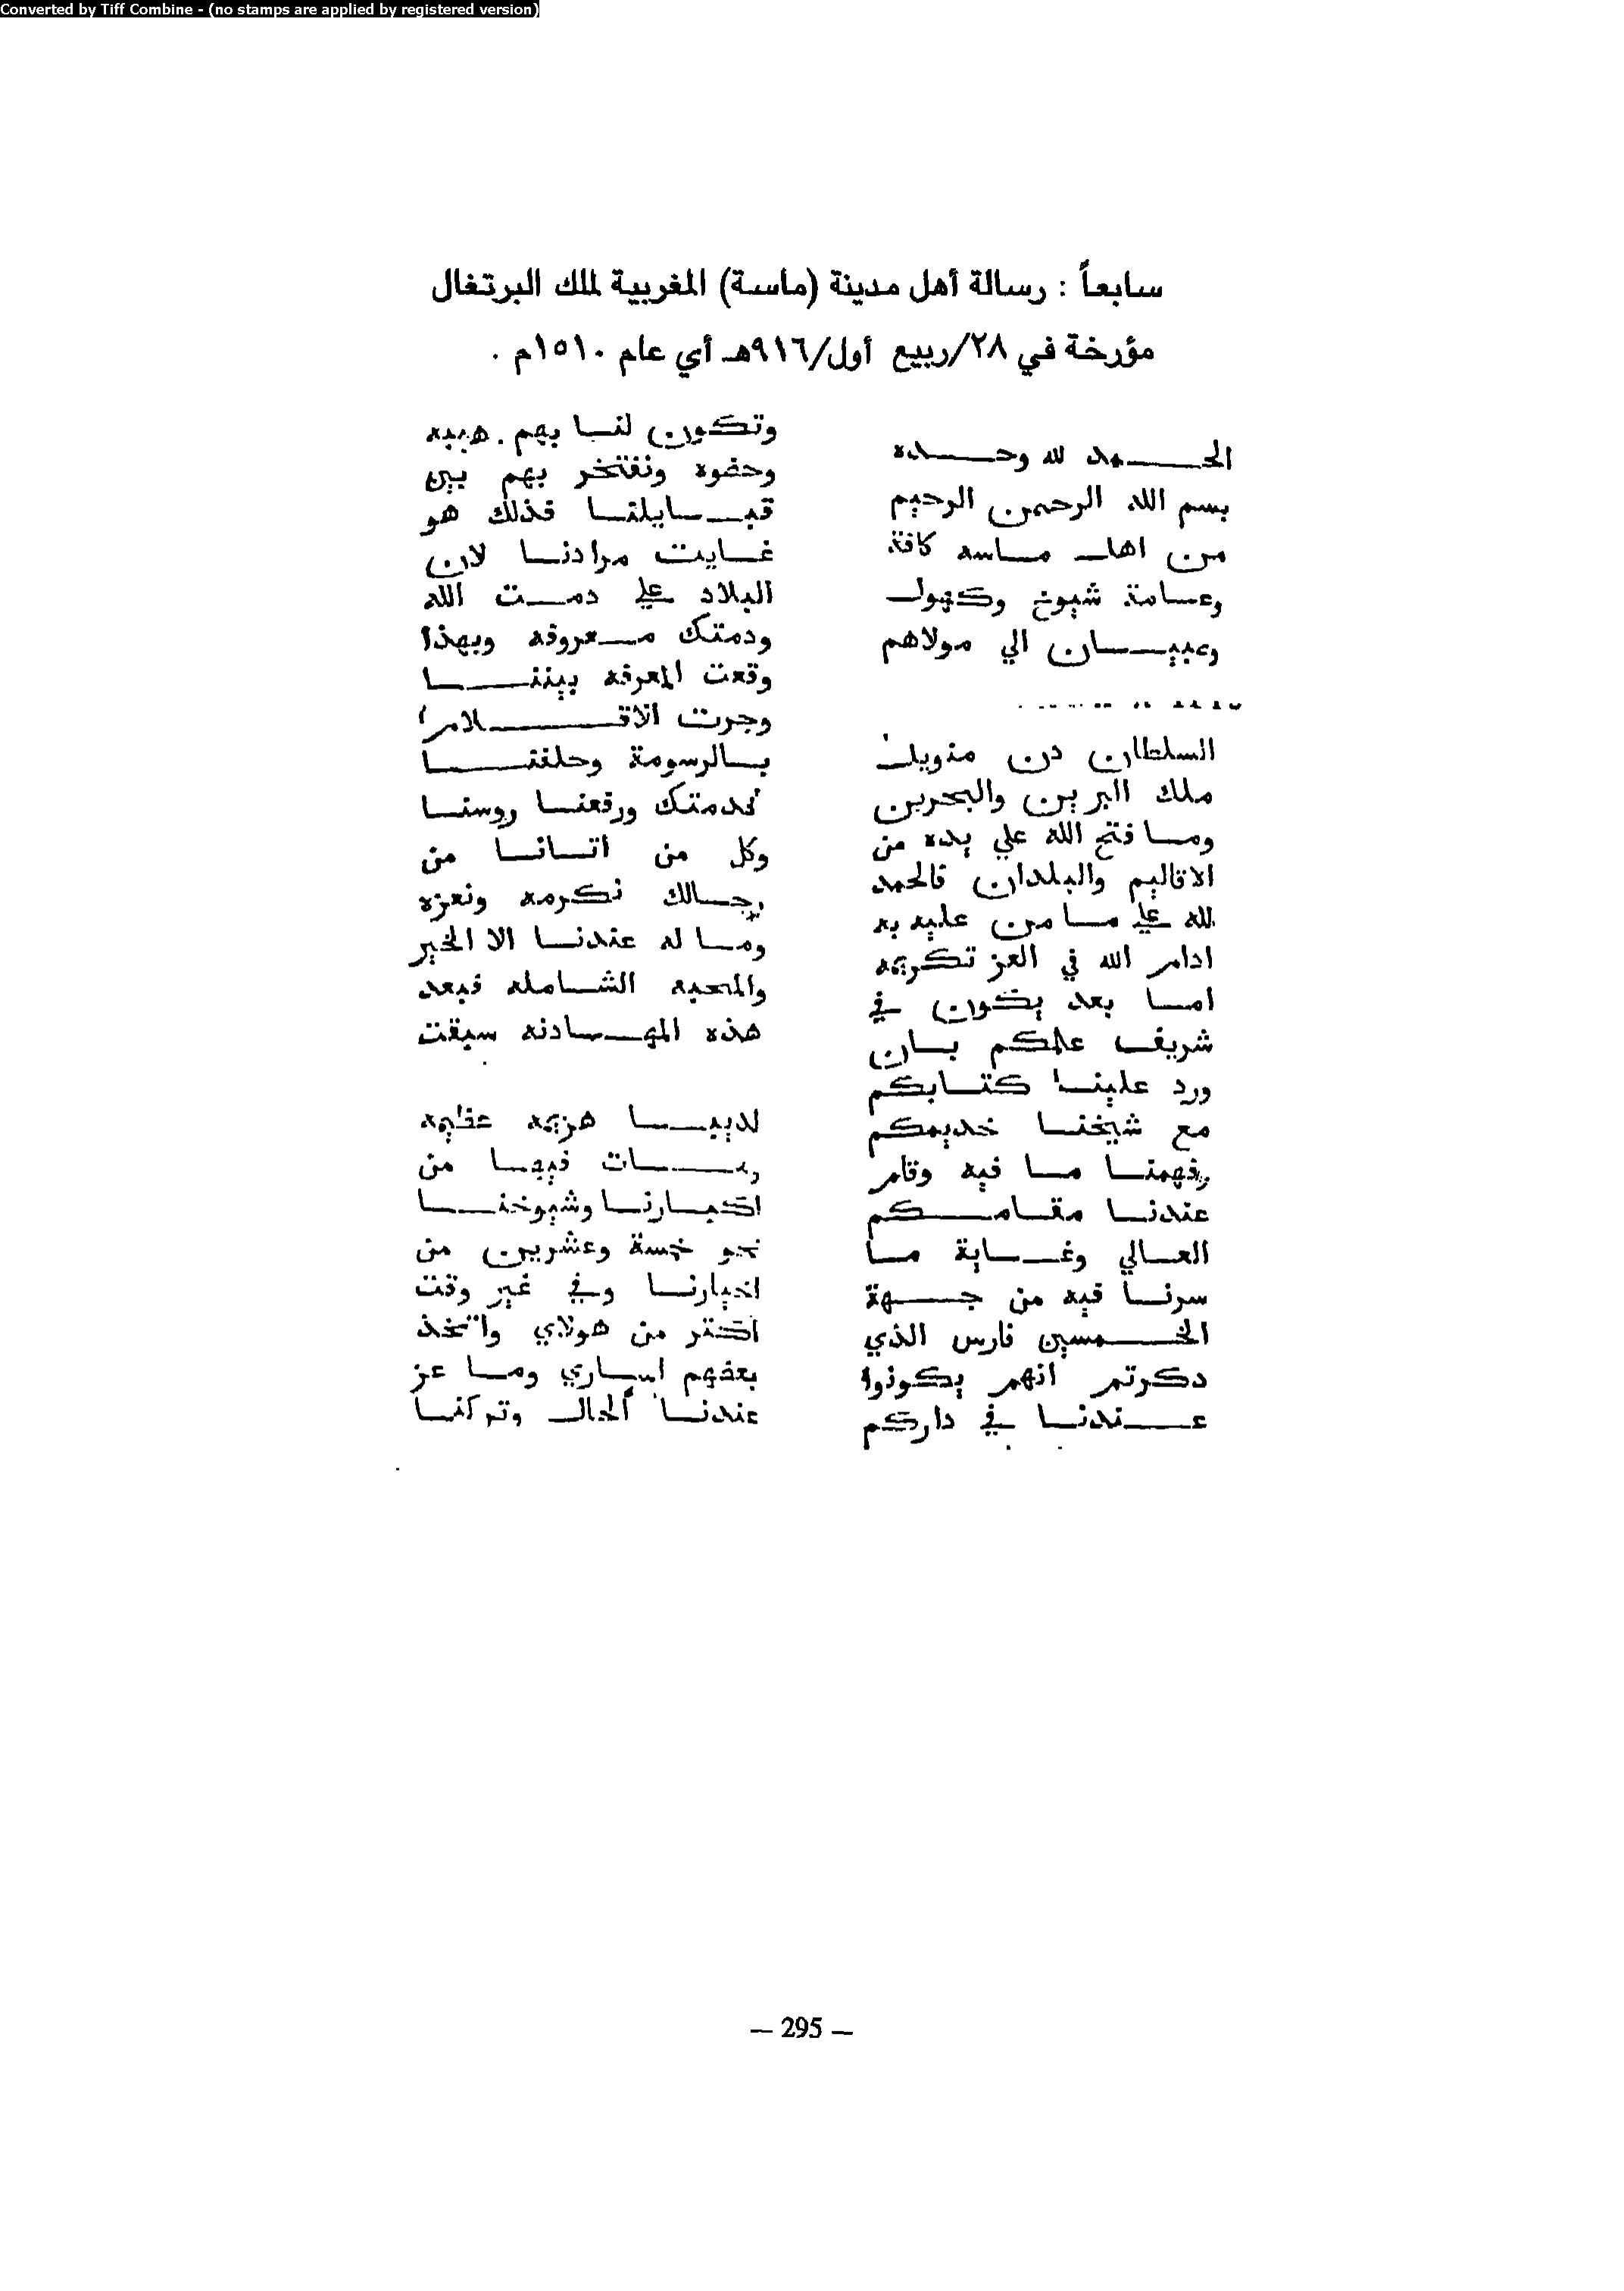 Converted by Tiff Combine - (no stamps are applied by registered version)
سابعاً : رسالة أهل مدينة (ماسة) المغربية لملك البرتغال
مؤرخة في ٢٨/ربيع أول/٩١٦هـ أي عام ١٥١٠م .
الحمد لله وحده
بسم الله الرحمن الرحيم
من اهل ماسه كافة
وعامة شيوخ وكهول
وعبيان الي مولاهم
السلطان دن منويل
ملك البرين والبحرين
وما فتح الله علي يده من
الاقاليم والبلدان فالحمد
لله علي ما من عليه به
ادام الله في العز تكريمه
اما بعد يكون في
شريف علمكم بان
ورد علينا كتابكم
مع شيخنا خديمكم
وفهمنا ما فيه وقام
عندنا مقامكم
العالي وغاية ما
سرنا فيه من جهة
الخمسين فارس الذي
دكرتم انهم يكونوا
عندنا في داركم
وتكون لنا بهم . هيبه
وحضوه ونفتخر بهم بين
قبايلنا فذلك هو
غايت مرادنا لان
البلاد علي دمت الله
ودمتك معروفه وبهذا
وقعت المعرفه بيننا
وجرت الاقلام
بالرسومة وحلفنا
لخدمتك ورفعنا روسنا
وكل من اتانا من
رجالك نكرمه ونعزه
وما له عندنا الا الخير
والمحبه الشامله فبعد
هذه المهادنه سبقت
لدينا هزيمه عظيمه
ومات فيها من
اكبارنا وشيوخنا
نحو خمسة وعشرين من
اخيارنا وفي غير وقت
اكتر من هولاي واتخذ
بعضهم اساري وما عز
عندنا الحال وتركنا
— 295 —